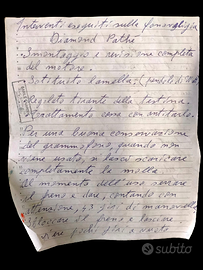 Interventi eseguiti sulla fonovaligia
Diamond Pathé
Smontaggio e revisione completa
del motore.
lamella
Registro tirante della testina.
Trattamento con antitarlo.
Per una buona conservazione
del grammofono, quando non
viene usato, si lasci scaricare
completamente la molla
Al momento dell'uso serrare
il freno e dare, contando con
attenzione, 43 giri di manovella
il freno e lasciare
subito